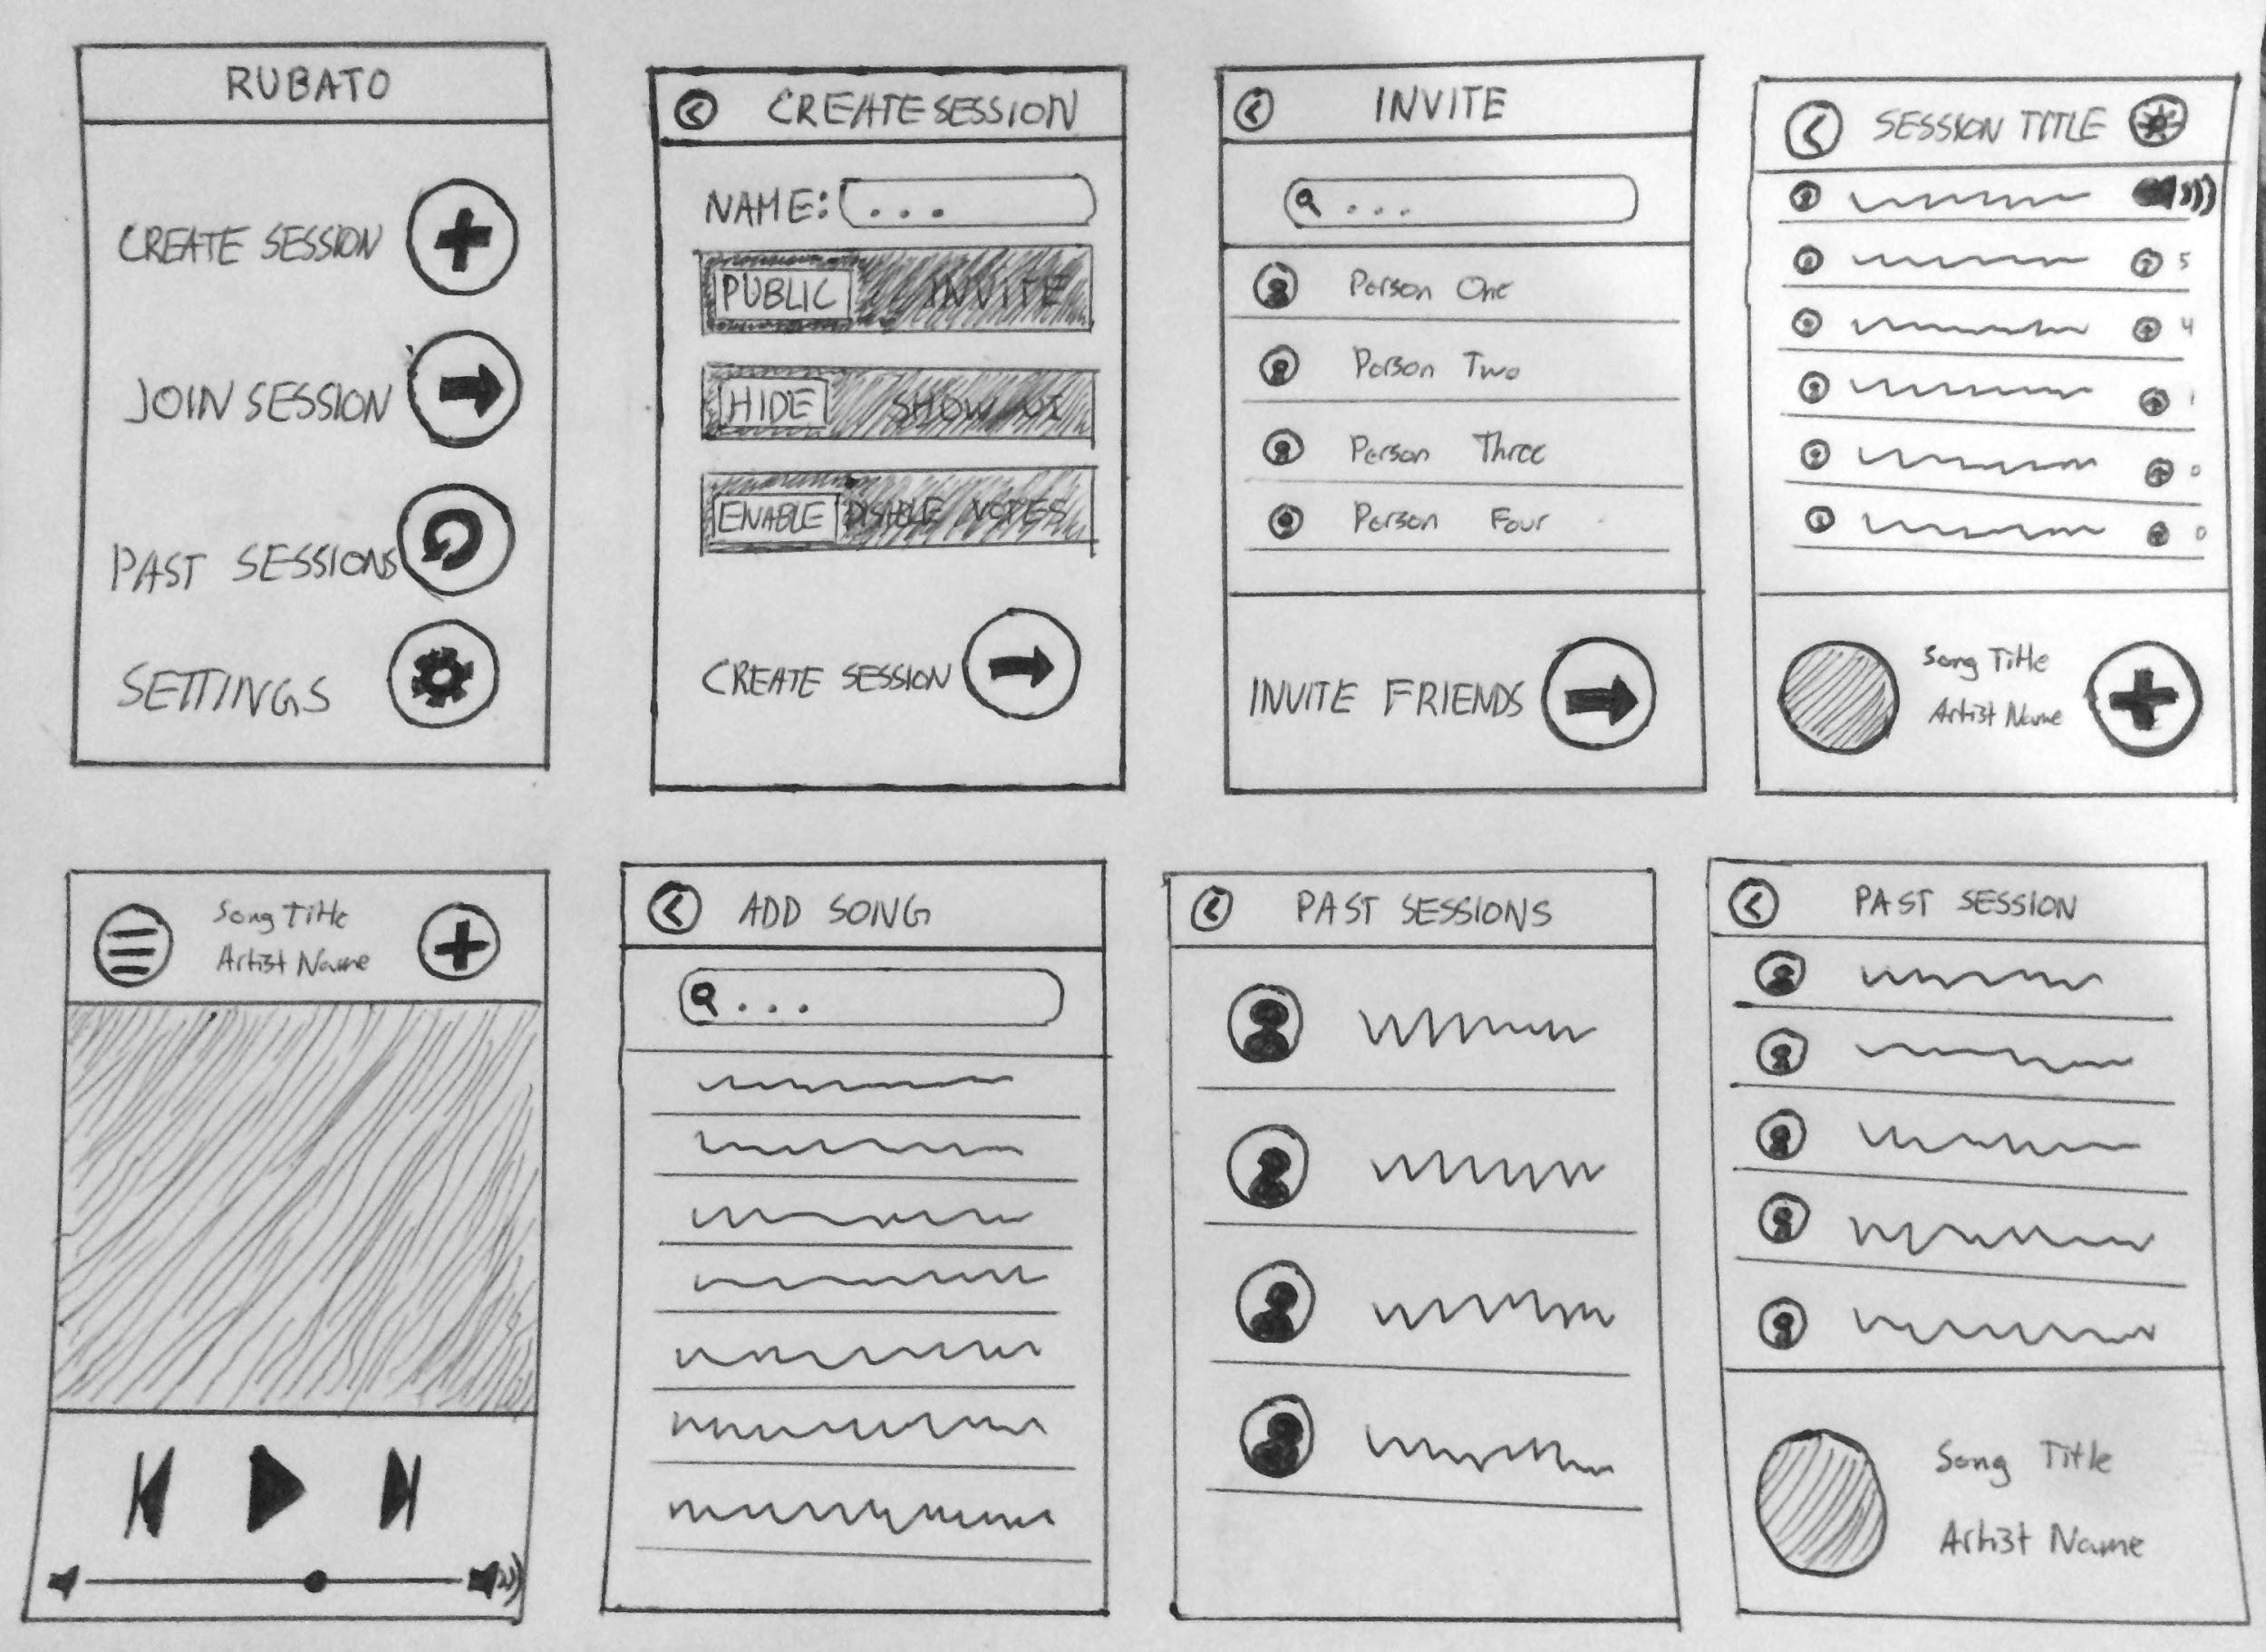 RUBATO
CREATE SESSION
JOIN SESSION
PAST SESSIONS
SETTINGS
CREATE SESSION
NAME: ...
PUBLIC INVITE
HIDE SHOW UI
ENABLE DISABLE VOTES
CREATE SESSION
INVITE
...
Person One
Person Two
Person Three
Person Four
INVITE FRIENDS
SESSION TITLE
5
4
1
0
0
Song Title
Artist Name
Song Title
Artist Name
ADD SONG
...
PAST SESSIONS
PAST SESSION
Song Title
Artist Name